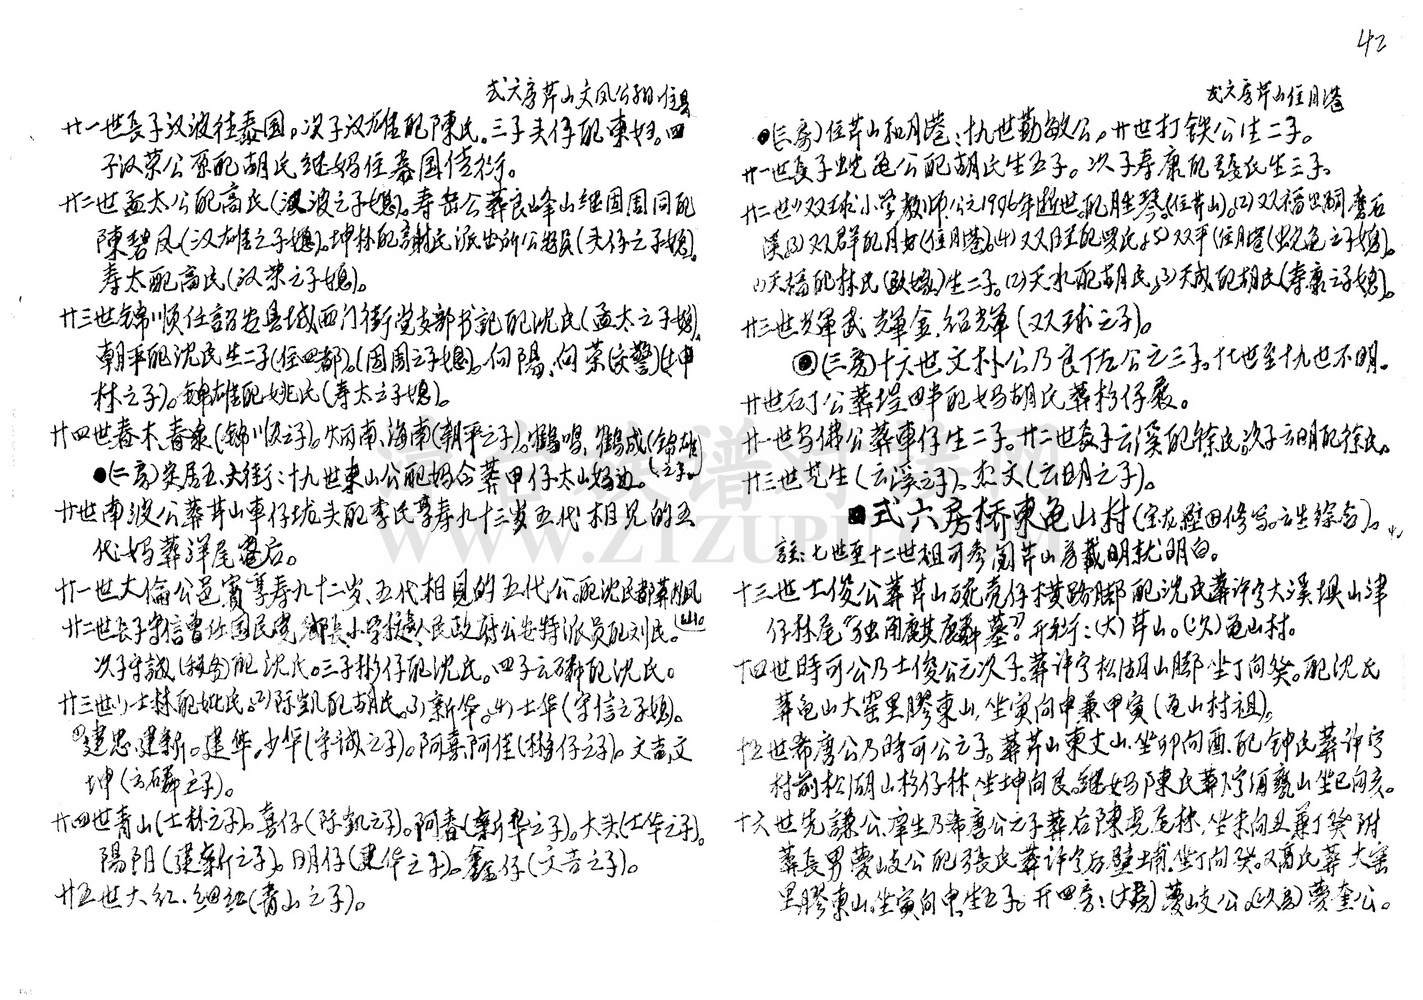 42
式六房芹山文凤公孙住县
廿一世長子汉波往泰国。次子汉雄配陳氏。三子夫仔配東妈。四
子汉荣公原配胡氏继妈住泰国
廿二世孟太公配高氏(汉波之子媳)。寿岳公葬良峰山继因周同配
陳碧凤(汉雄之子媳)。坤林配謝氏派出所公安員(夫仔之子媳)。
寿太配高氏(汉荣之子媳)。
廿三世锦順任詔安县城西门街党支部书記配沈氏(孟太之子媳)
朝平配沈氏生二子(住四都)。(因周之子媳)。向陽、向荣(交警)(坤
林之子)。锦雄配姚氏(寿太之子媳)。
廿四世春木、春泉(锦順之子)。炳南、海南(朝平之子)。鶴鳴、鶴成(锦雄
之子)。
●(二房)安居五夫街:十九世東山公配妈合葬甲仔太山妈边。
廿世南波公葬芹山車仔坑头配李氏享寿九十三岁五代相見的五
代妈葬洋尾后。
廿一世大倫公邑賓享寿九十二岁、五代相見的五代公。配沈氏都葬凤
山。
廿二世長子守信曾任国民党鄉長小学校人民政府公安特派员配刘氏。
次子守誠配沈氏。三子彬仔配沈氏。四子云磷配沈氏。
廿三世(1)士林配姚氏(2)际凱配胡氏(3)新华。(4)士华(守信之子媳)。
(1)建忠、建新。建华。少华(守诚之子)。阿喜、阿佳(彬仔之子)。文吉、文
坤(云磷之子)。
廿四世青山(士林之子)。喜仔(际凱之子)。阿春(新华之子)。大头(士华之子)。
陽阴(建新之子)。明仔(建华之子)。鑫仔(文吉之子)。
廿五世大红、细红(青山之子)。
式六房芹山住月港
●(三房)住芹山和月港:十九世勤敏公。廿世打铁公生二子。
廿一世長子蛇龟公配胡氏生五子。次子寿康配張氏生三子。
廿二世(1)双球小学教师公元1996年逝世。配月生琴。(住芹山)。(2)双福出嗣磨石
溪(3)双群配月女(住月港)。(4)双旺配罗氏(5)双平(住月港)(蛇龟之子媳)。
(1)天福配林氏(改嫁)生二子。(2)天水配胡氏(3)天成配胡氏(寿康之子媳)。
廿三世輝武、輝金、绍輝(双球之子)。
●(三房)十六世文朴公乃良佐公之三子。十七世至十九世不明。
廿世石丁公葬埕田畔配妈胡氏葬杉仔
廿一世乌佛公葬車仔生二子。廿二世長子云溪配徐氏次子云明配徐氏。
廿三世芝生(云溪之子)、杰文(云明之子)。
■式六房桥東龟山村(宝龙、壁田修写。云生综合)。
註:七世至十二世祖可参阅芹山房載明就明白。
十三世士俊公葬芹山碗壳仔横路脚配沈氏葬許宁大溪埧山津
仔林尾“独角麒麟墓”。开衍:(大)芹山。(次)龟山村。
十四世時可公乃士俊公之次子、葬許宁松湖山脚坐丁向癸。配沈氏
葬龟山大窑里膠東山、坐寅向申兼甲寅(龟山村祖)。
十五世希唐公乃時可公之子、葬芹山東丈山、坐卯向酉、配钟氏葬許宁
村前松湖山杉仔林、坐坤向艮。继妈陳氏葬下宁須甕山坐巳向亥。
十六世先謙公、庠生乃希唐公之子葬后陳虎尾林、坐未向丑兼丁癸附
葬長男夢岐公配張氏葬許宁后壁埔、坐丁向癸。又高氏葬大窑
里膠東山、坐寅向申、生五子。开四房:(大房)夢岐公。(次房)夢奎公。
WWW.ZTZUPU.COM